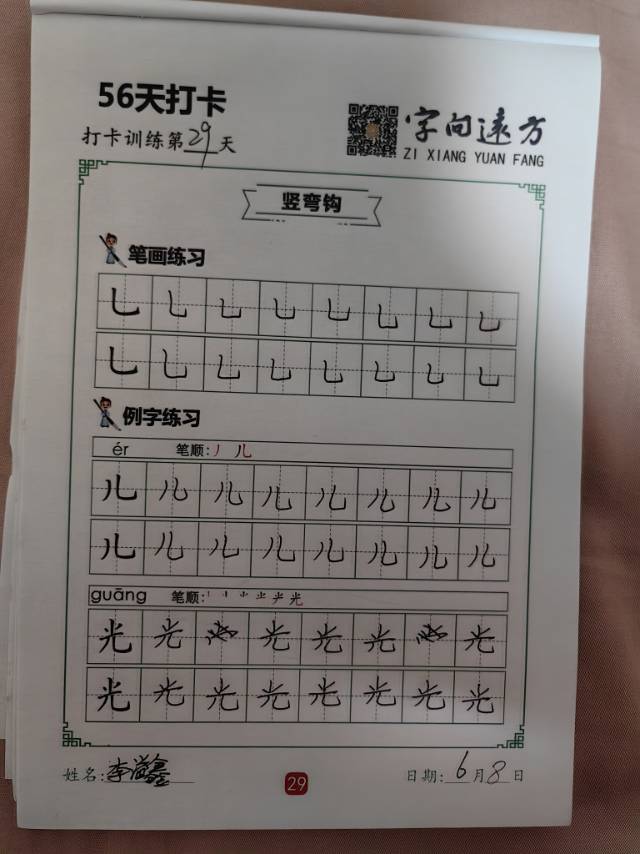 56天打卡
字向远方
打卡训练第29天
ZI XIANG YUAN FANG
竖弯钩
笔画练习
乚乚乚乚乚乚乚乚
乚乚乚乚乚乚乚乚
例字练习
ér 笔顺:丿 儿
儿儿儿儿儿儿儿儿
儿儿儿儿儿儿儿儿
guāng 笔顺:
光光光光光光
光光光光光光光光
姓名:李鑫
29
日期:6月8日